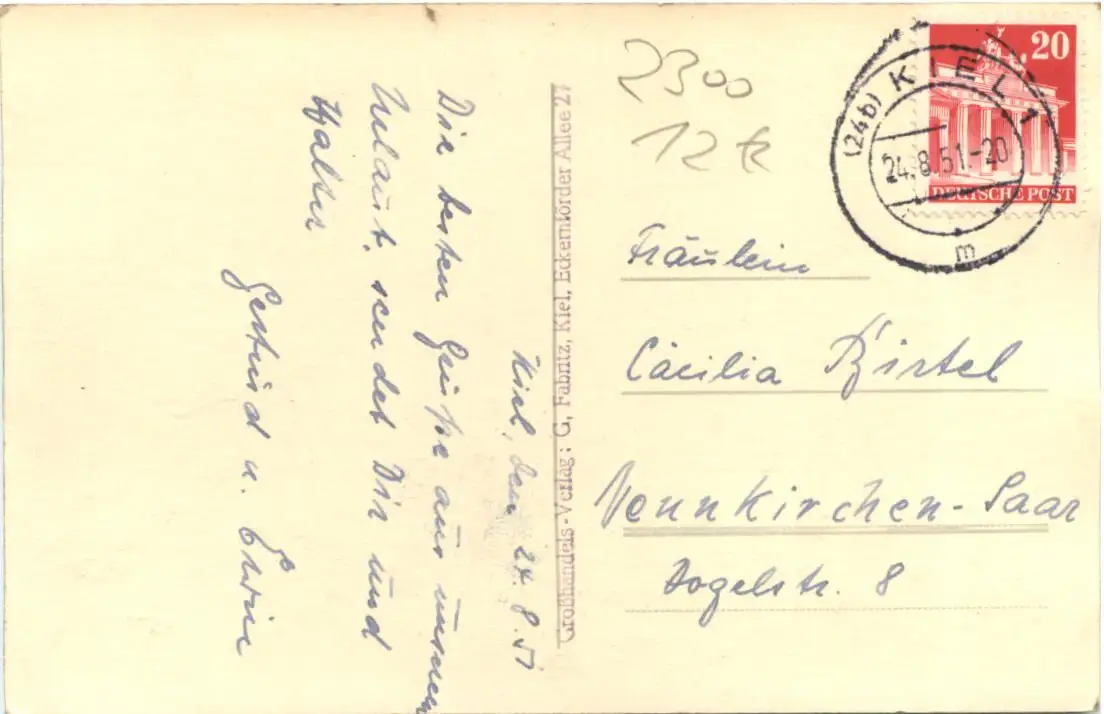 Kiel, den 24.8.51
Die besten Grüße aus unserem
Urlaub, sendet Dir und
Walter
Gertrud u. Erwin
Großhandels-Verlag: G. Fabritz, Kiel, Eckernförder Allee 27
2300
12
20
DEUTSCHE POST
(24b) KIEL 1
24.8.51.-20
m
Fräulein
Cäcilia Birtel
Neunkirchen-Saar
Vogelstr. 8